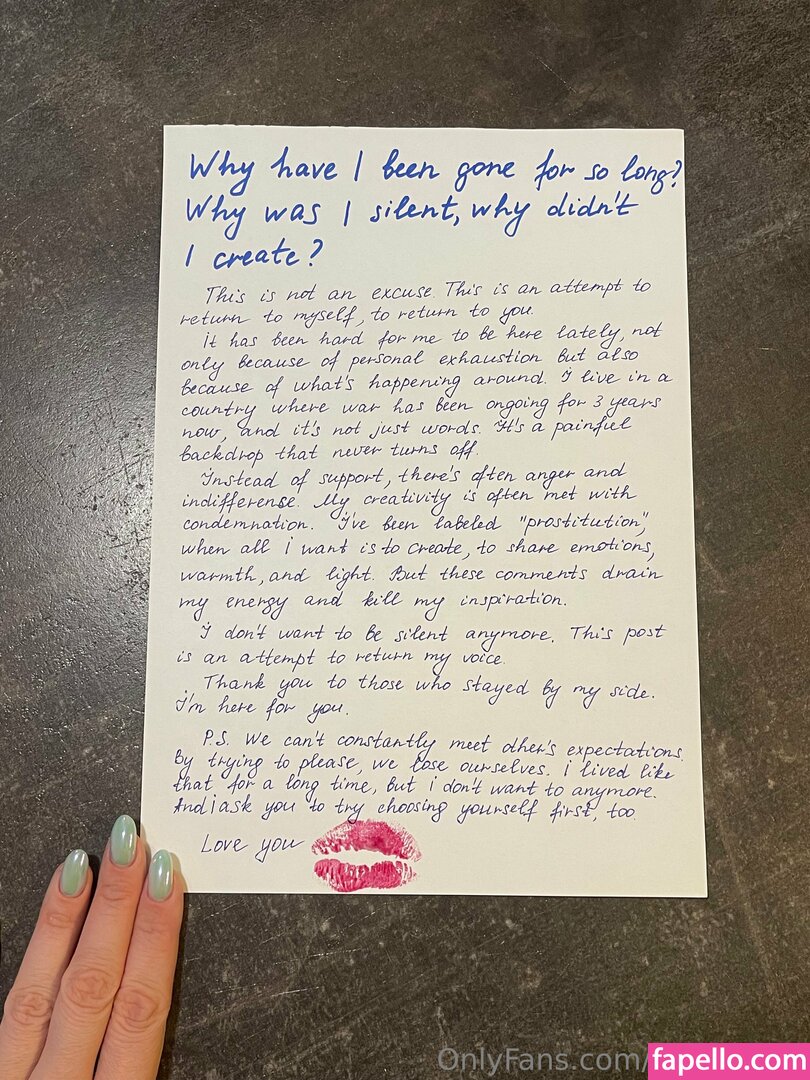 Why have I been gone for so long?
Why was I silent, why didn't
I create?
This is not an excuse. This is an attempt to
return to myself, to return to you.
It has been hard for me to be here lately, not
only because of personal exhaustion but also
because of what's happening around. I live in a
country where war has been ongoing for 3 years
now, and it's not just words. It's a painful
backdrop that never turns off.
Instead of support, there's often anger and
indifferense. My creativity is often met with
condemnation. I've been labeled "prostitution",
when all i want is to create, to share emotions,
warmth, and light. But these comments drain
my energy and kill my inspiration.
I don't want to be silent anymore. This post
is an attempt to return my voice.
Thank you to those who stayed by my side.
I'm here for you.
P.S. We can't constantly meet other's expectations.
By trying to please, we lose ourselves. i lived like
that for a long time, but i don't want to anymore.
And i ask you to try choosing yourself first, too.
Love you
OnlyFans.com/
fapello.com